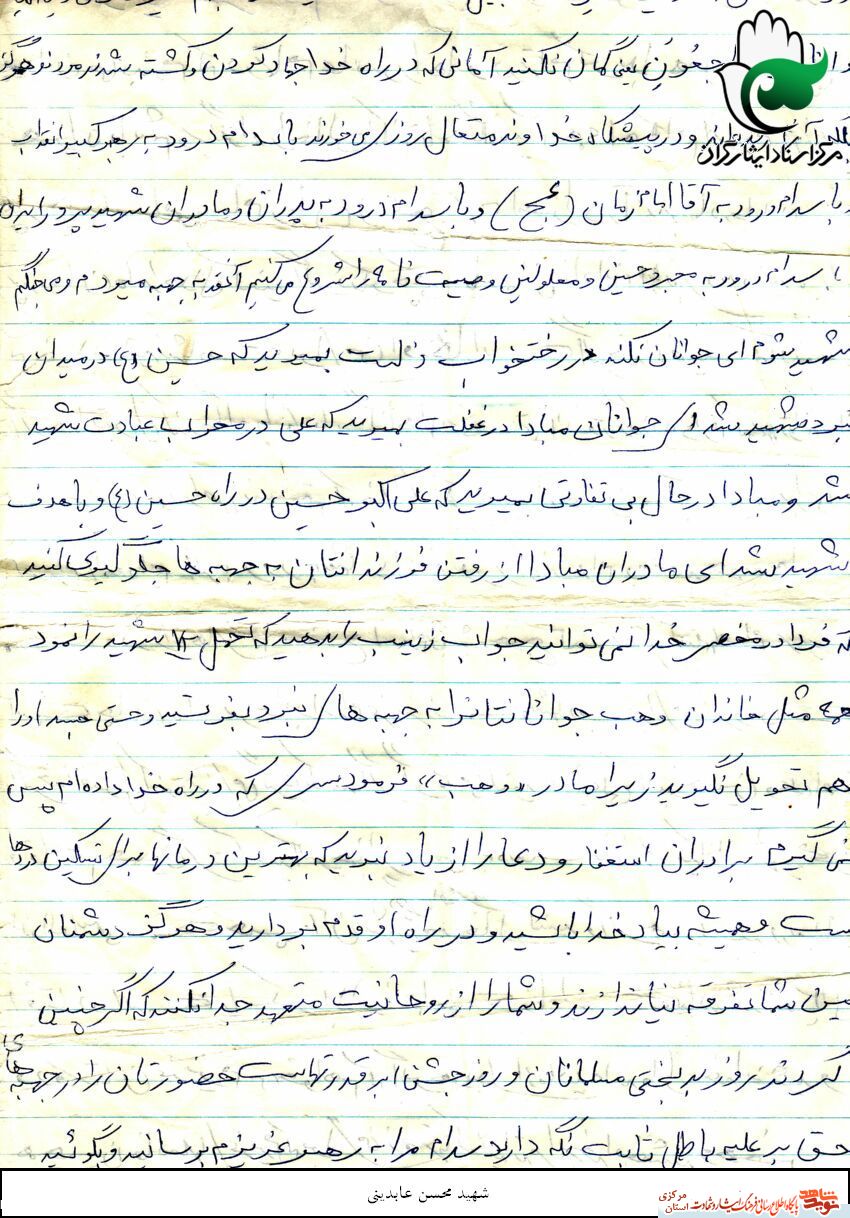 و انا جعون یعنی گمان نکنید آنانی که در راه خدا جهاد کردن و کشته شدند مردند هرگز
بلکه آنان زنده‌اند و در پیشگاه خداوند متعال روزی می خورند با سلام درود به رهبر کبیر انقلاب
مرکز اسناد ایثارگران
و با سلام درود به آقا امام زمان (عج) و با سلام درود به پدران و مادران شهید پرور ایران
با سلام درود به مجروحین و معلولین وصیت نامه را شروع می کنیم آنقدر به جبهه میروم و می جنگم
شهید شوم ای جوانان نکند در رختخواب ذلت بمیرید که حسین (ع) در میدان
نبرد شهید شد ای جوانان مبادا در غفلت بمیرید که علی در محراب عبادت شهید
شد و مبادا در حال بی تفاوتی بمیرید که علی اکبر حسین در راه حسین (ع) و با هدف
شهید شد ای مادران مبادا از رفتن فرزندانتان به جبهه ها جلوگیری کنید
که فردا در محضر خدا نمی توانید جواب زینب را بدهید که تحمل ۷۲ شهید را نمود
همه مثل خاندان وهب جوانانتانرا به جبهه های نبرد بفرستید و حتی جسد او را
هم تحویل نگیرید زیرا مادر «وهب» فرمود سری که در راه خدا داده ام پس
نمی گیرم برادران استغفار و دعا را از یاد نبرید که بهترین درمانها برای تسکین دردها
ست و همیشه بیاد خدا باشید و در راه او قدم بردارید و هرگز دشمنان
بین شما تفرقه نیاندازند و شما را از روحانیت متعهد جدا نکنند که اگر چنین
کردند روز بدبختی مسلمانان و روز جشن ابرقدرتهاست حضورتان را در جبهه های
حق بر علیه باطل ثابت نگه دارید سلام مرا به رهبر عزیزم برسانید و بگوئید
شهید محسن عابدینی
نوید شاهد
پایگاه اطلاع رسانی فرهنگ ایثار و شهادت
استان مرکزی